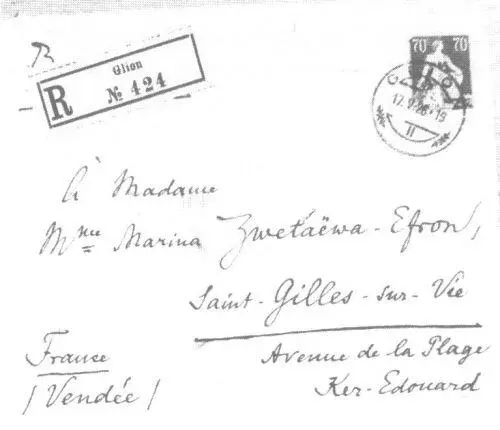 70 70
Glion
R № 424
GLION
17.V.26-19
II
À Madame
Mme Marina Zwetaëwa-Efron,
Saint-Gilles-sur-Vie
France
Avenue de la Plage
/Vendée/
Ker-Edouard